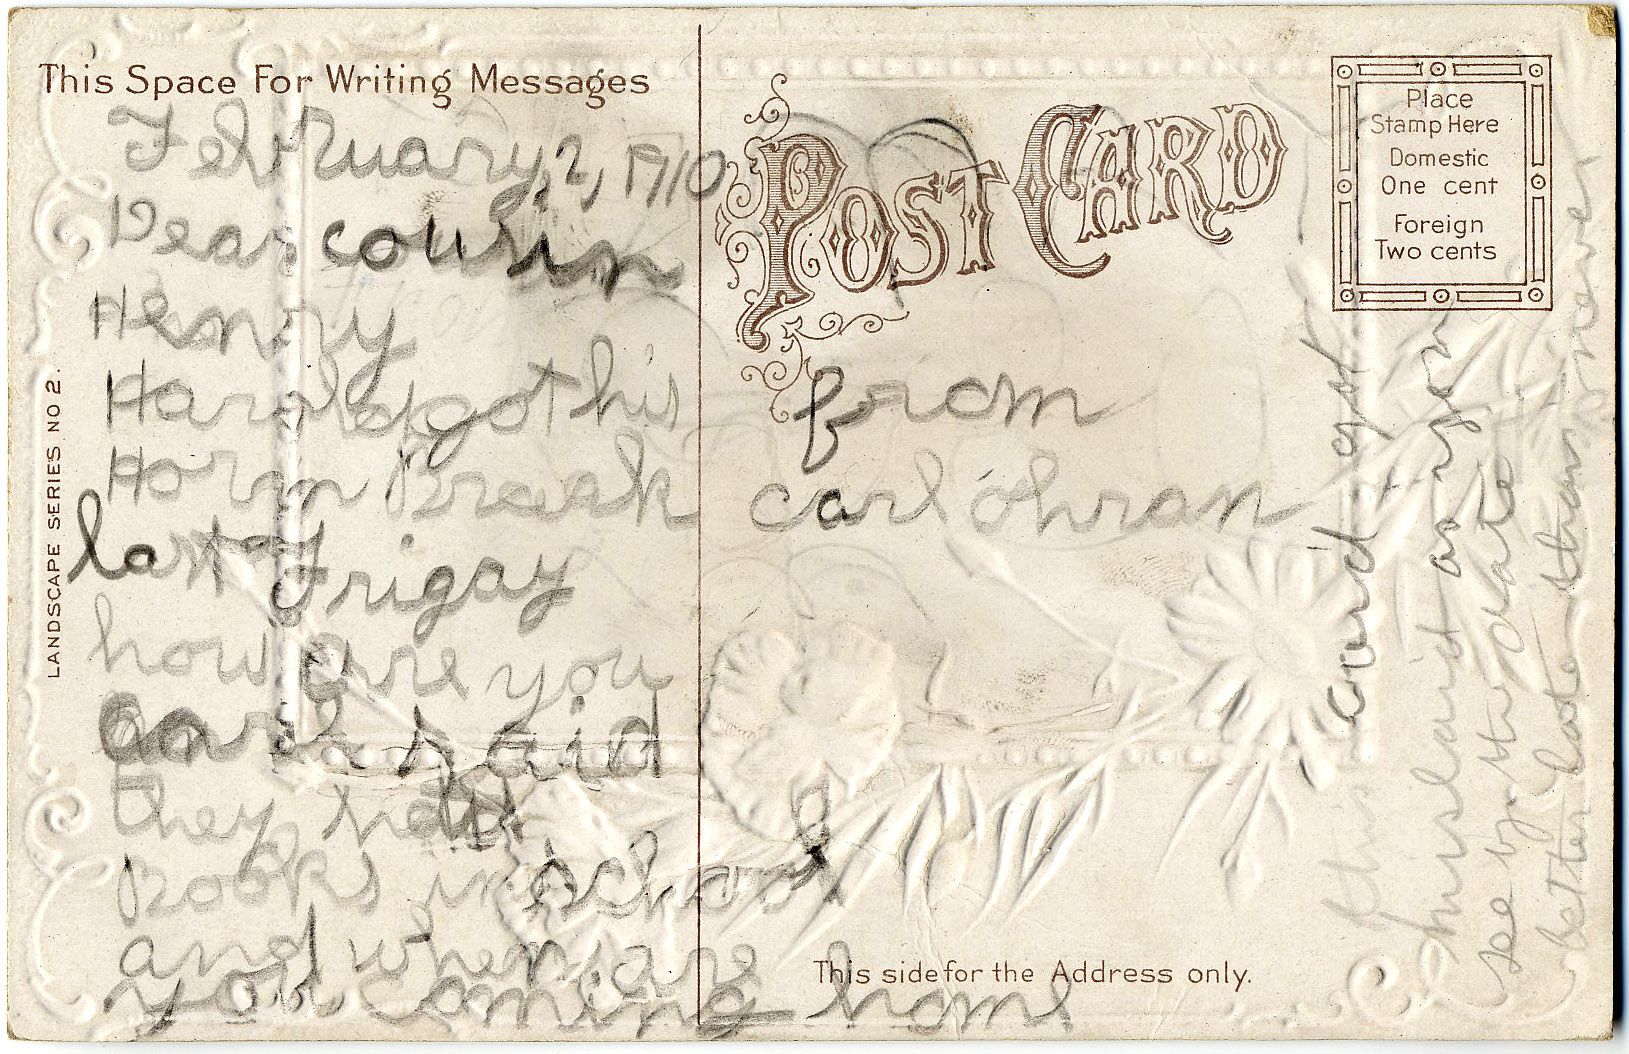 This Space For Writing Messages
February, 2, 1910
Dear cousin
Henry
Harold got his
Horin Break
last Frigay
how are you
carl said
they had
Books in school
and when are
you coming home
LANDSCAPE SERIES NO 2.
POST CARD
Place
Stamp Here
Domestic
One cent
Foreign
Two cents
from
carl ohran
This side for the Address only.
this card got
mislaid as you
see by the date
better late than never